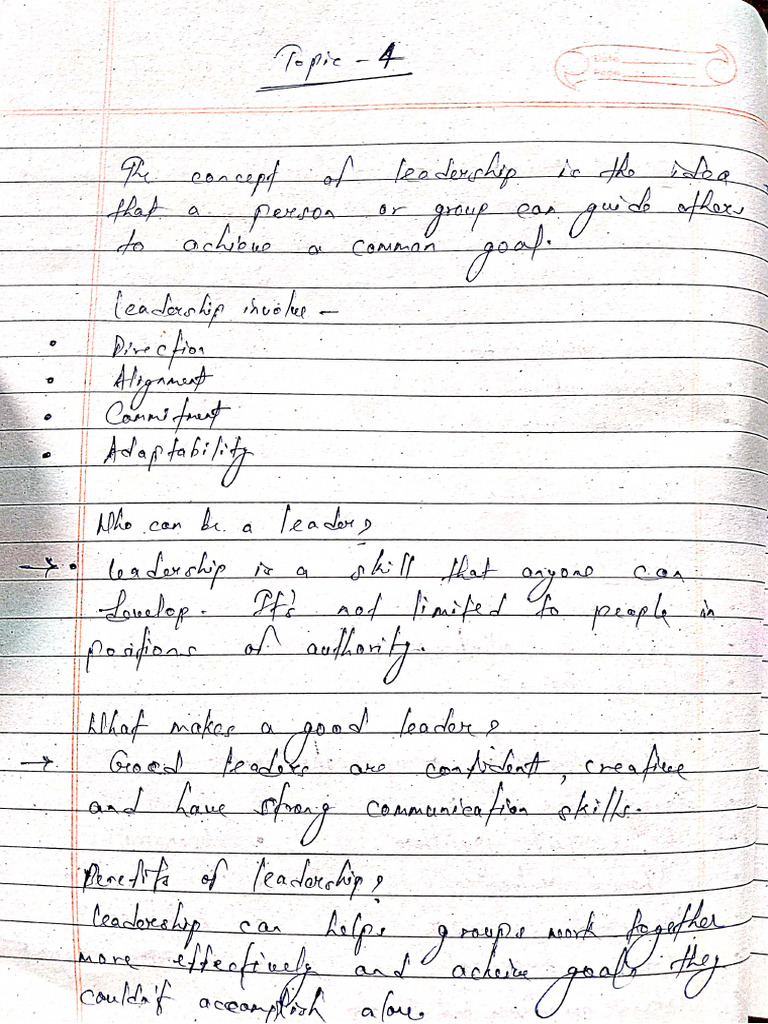 Topic - 4
Date
Page
The concept of leadership is the idea
that a person or group can guide others
to achieve a common goal.
Leadership involve -
• Direction
• Alignment
• Commitment
• Adaptability
Who can be a leader?
→ • Leadership is a skill that anyone can
develop. It's not limited to people in
positions of authority.
What makes a good leader?
→ Good leaders are confident, creative
and have strong communication skills.
Benefits of leadership?
leadership can helps groups work together
more effectively and acheive goals they
couldn't accomplish alone